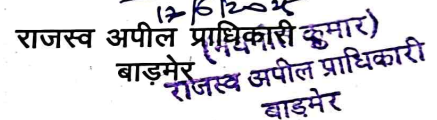 17/6/2025
राजस्व अपील प्राधिकारी
कुमार)
बाड़मेर
राजस्व अपील प्राधिकारी
बाड़मेर